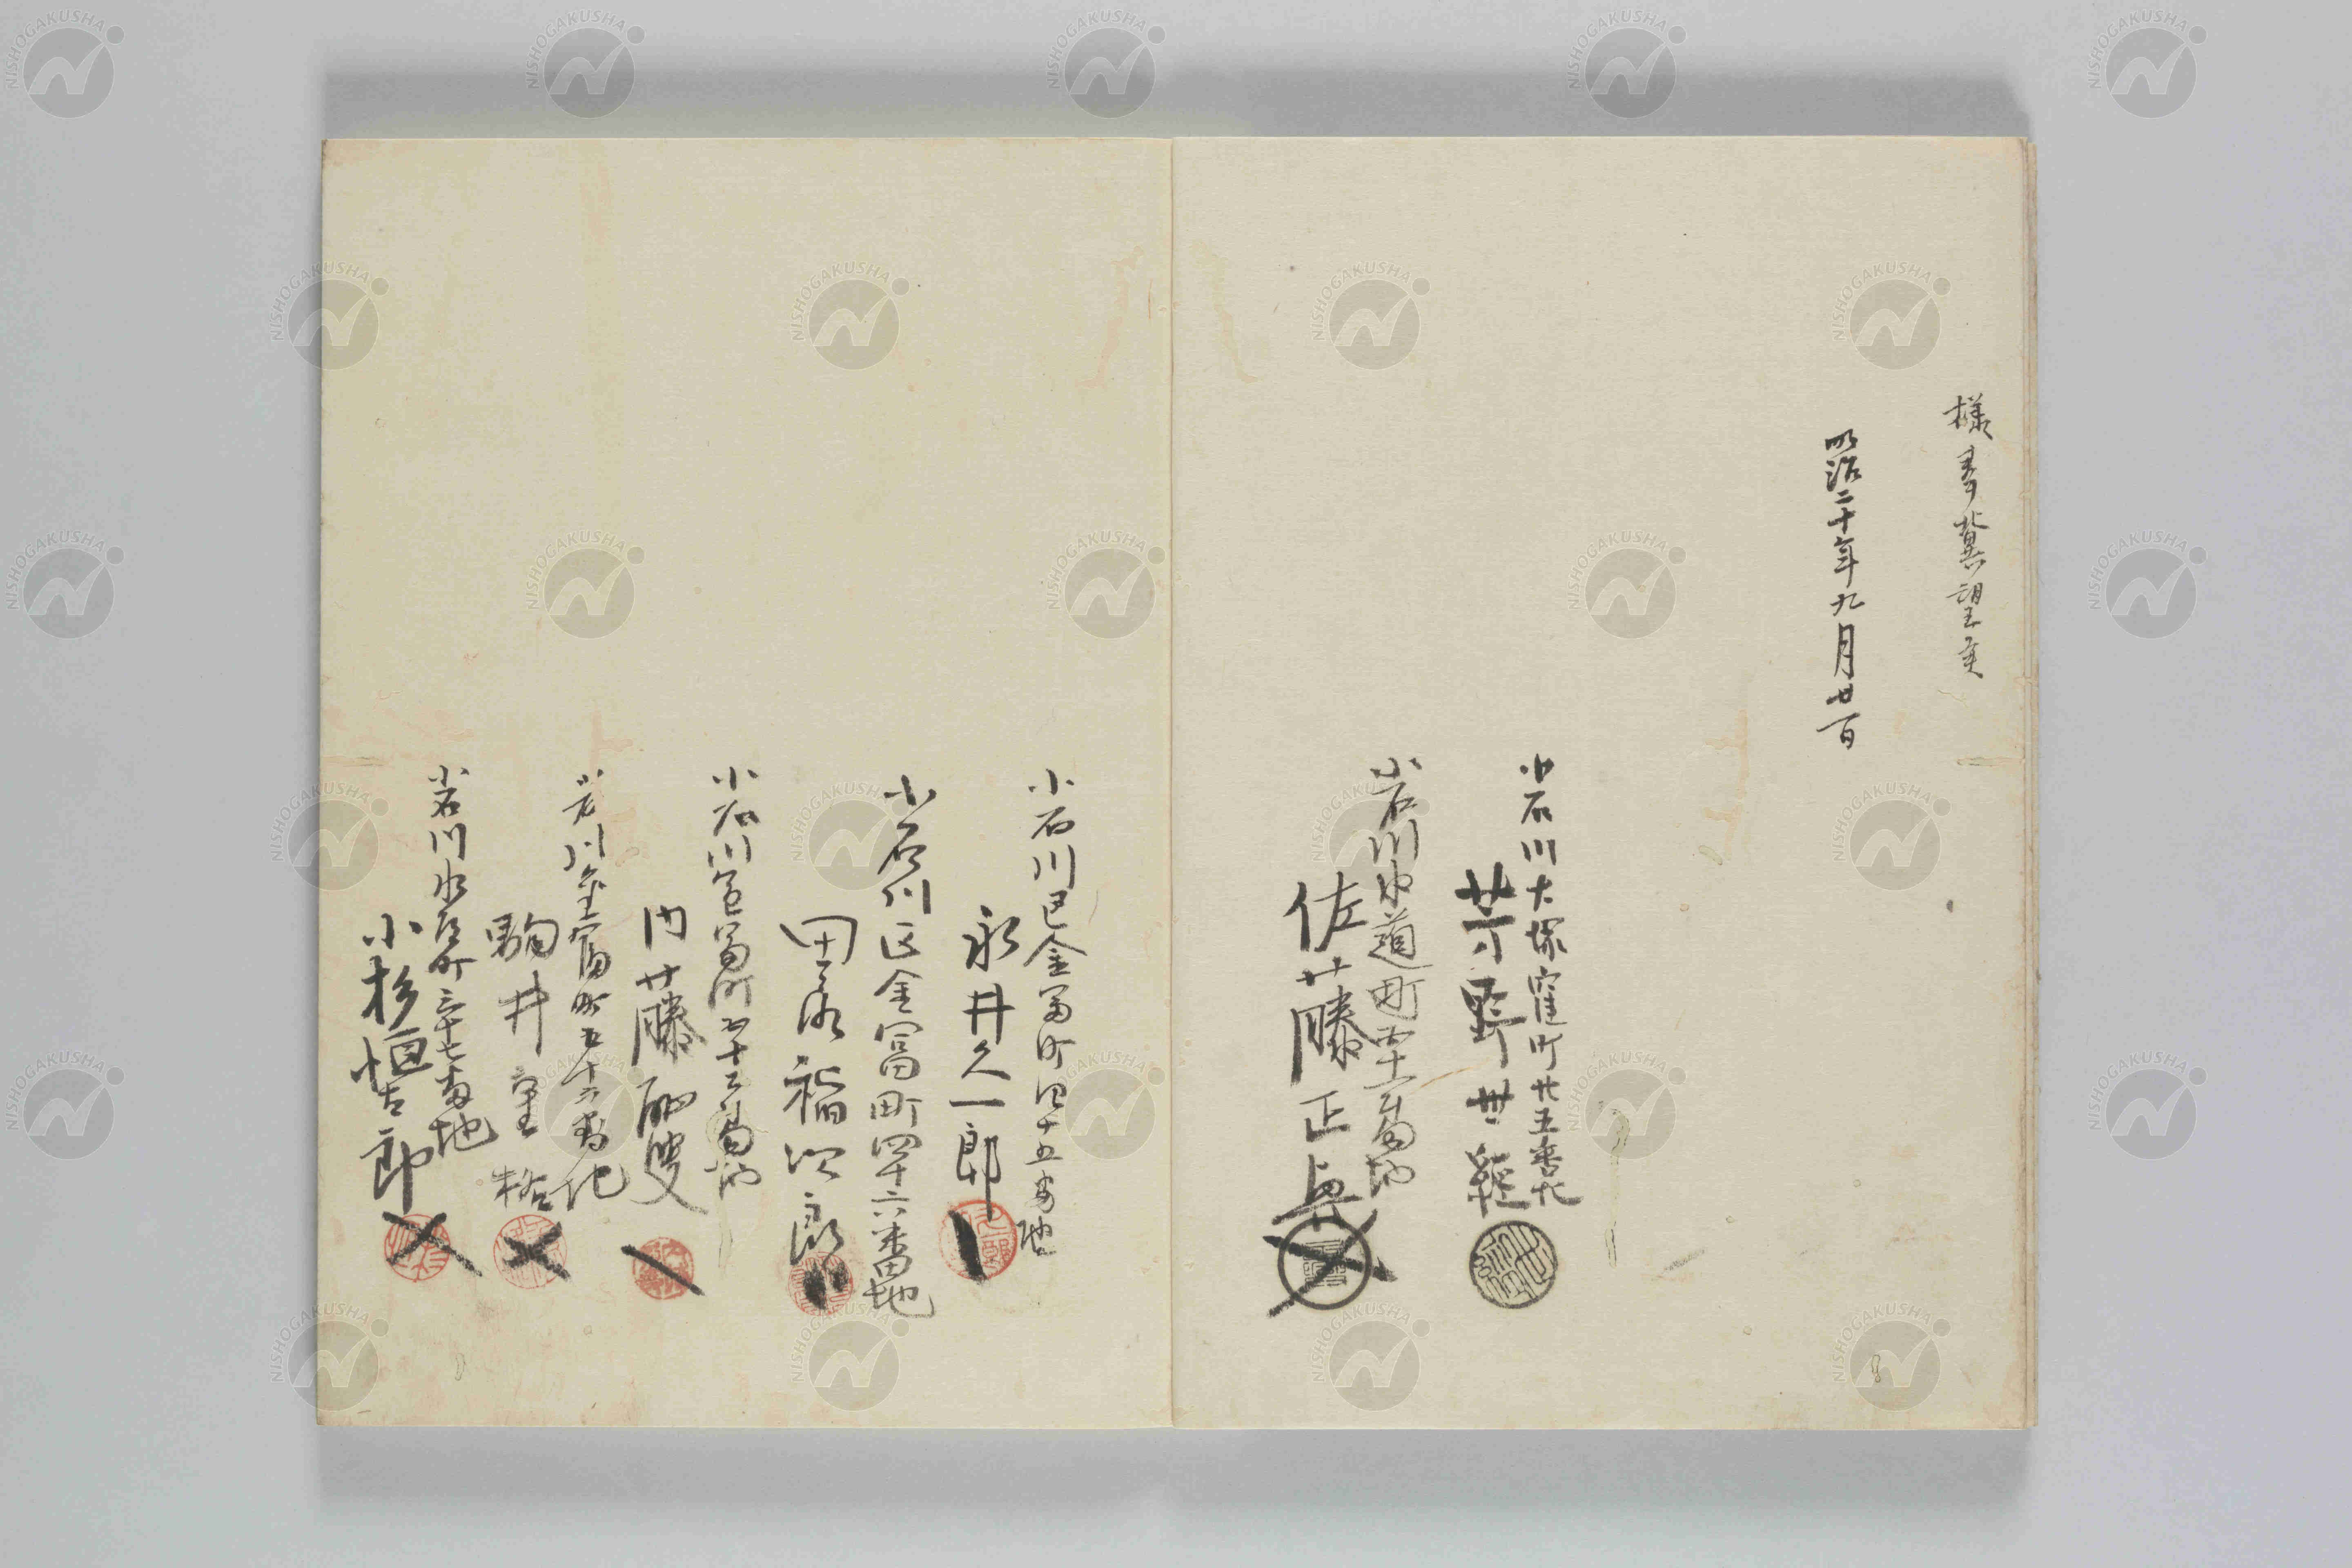 様奉冀望候
明治二十年九月廿一日
小石川大塚窪町廿五番地
芳野世経
小石川水道町四十一番地
佐藤正興
小石川区金富町四十五番地
永井久一郎
小石川区金富町四十六番地
田永福次郎
小石川金富町五十三番地
内藤耻叟
小石川金富町五十六番地
駒井重格
小石川水道町三十七番地
小杉恒太郎